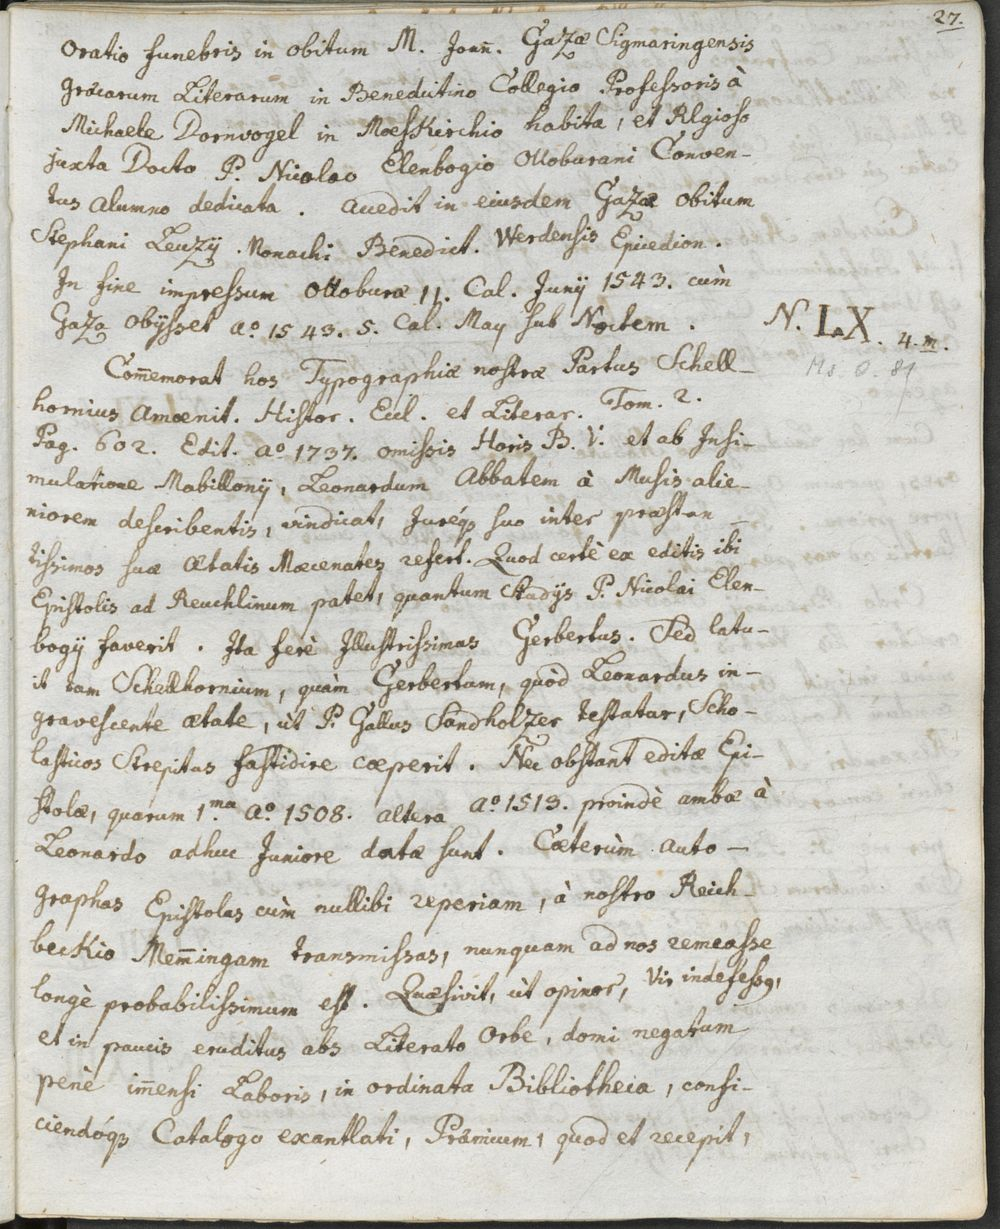 27.
Oratio funebris in obitum M. Joan̄. Gazæ Sigmaringensis
græcarum Literarum in Benedictino Collegio Professoris à
Michaele Dornvogel in Moesskirchio habita, et Rlgioso
juxta Docto P. Nicolao Elenbogio Ottoburani Conven-
tus Alumno dedicata. Accedit in eiusdem Gazæ obitum
Stephani Leuzÿ. Monachi Benedict. Werdensis Epicedion.
In fine impressum Ottoburæ 11. Cal. Junÿ 1543. cùm
Gaza obÿsset aº 1543. 5. Cal. May sub Noctem. N. LX. 4. m.
Ms O. 81
Com̄emorat hos Typographiæ nostræ Partus Schell-
hornius Amœnit. Histor. Eccl. et Literar. Tom. 2.
Pag. 602. Edit. aº 1737. omissis Horis B. V. et ab Insi-
mulatione Mabillonÿ, Leonardum Abbatem à Musis alie-
niorem describentis, vindicat, Juréq3 suo inter præstan-
tissimos suæ Ætatis Mœcenates refert. Quod certè ex editis ibi
Epistolis ad Reuchlinum patet, quantum Studÿs P. Nicolai Elen-
bogÿ faverit. Ita ferè Illustrissimus Gerbertus. Sed latu-
it tam Schellhornium, quàm Gerbertum, quòd Leonardus in-
gravescente ætate, ùt P. Gallus Sandholzer testatur, Scho-
lasticos Strepitus fastidire cæperit. Nec obstant editæ Epi-
stolæ, quarum 1.ma aº 1508. altera aº 1513. proindè ambæ à
Leonardo adhuc Juniore datæ sunt. Cæterùm auto-
graphas Epistolas cùm nullibi reperiam, à nostro Reich-
beckio Mem̄ingam transmissas, nunquam ad nos remeasse
longè probabilissimum est. Quæsivit, ùt opinor, Vir indefessq,
et in paucis eruditus abs Literato Orbe, domi negatum
penè im̄ensi Laboris, in ordinata Bibliotheca, confi-
ciendóq3 Catalogo exantlati, Præmium, quod et recepit,